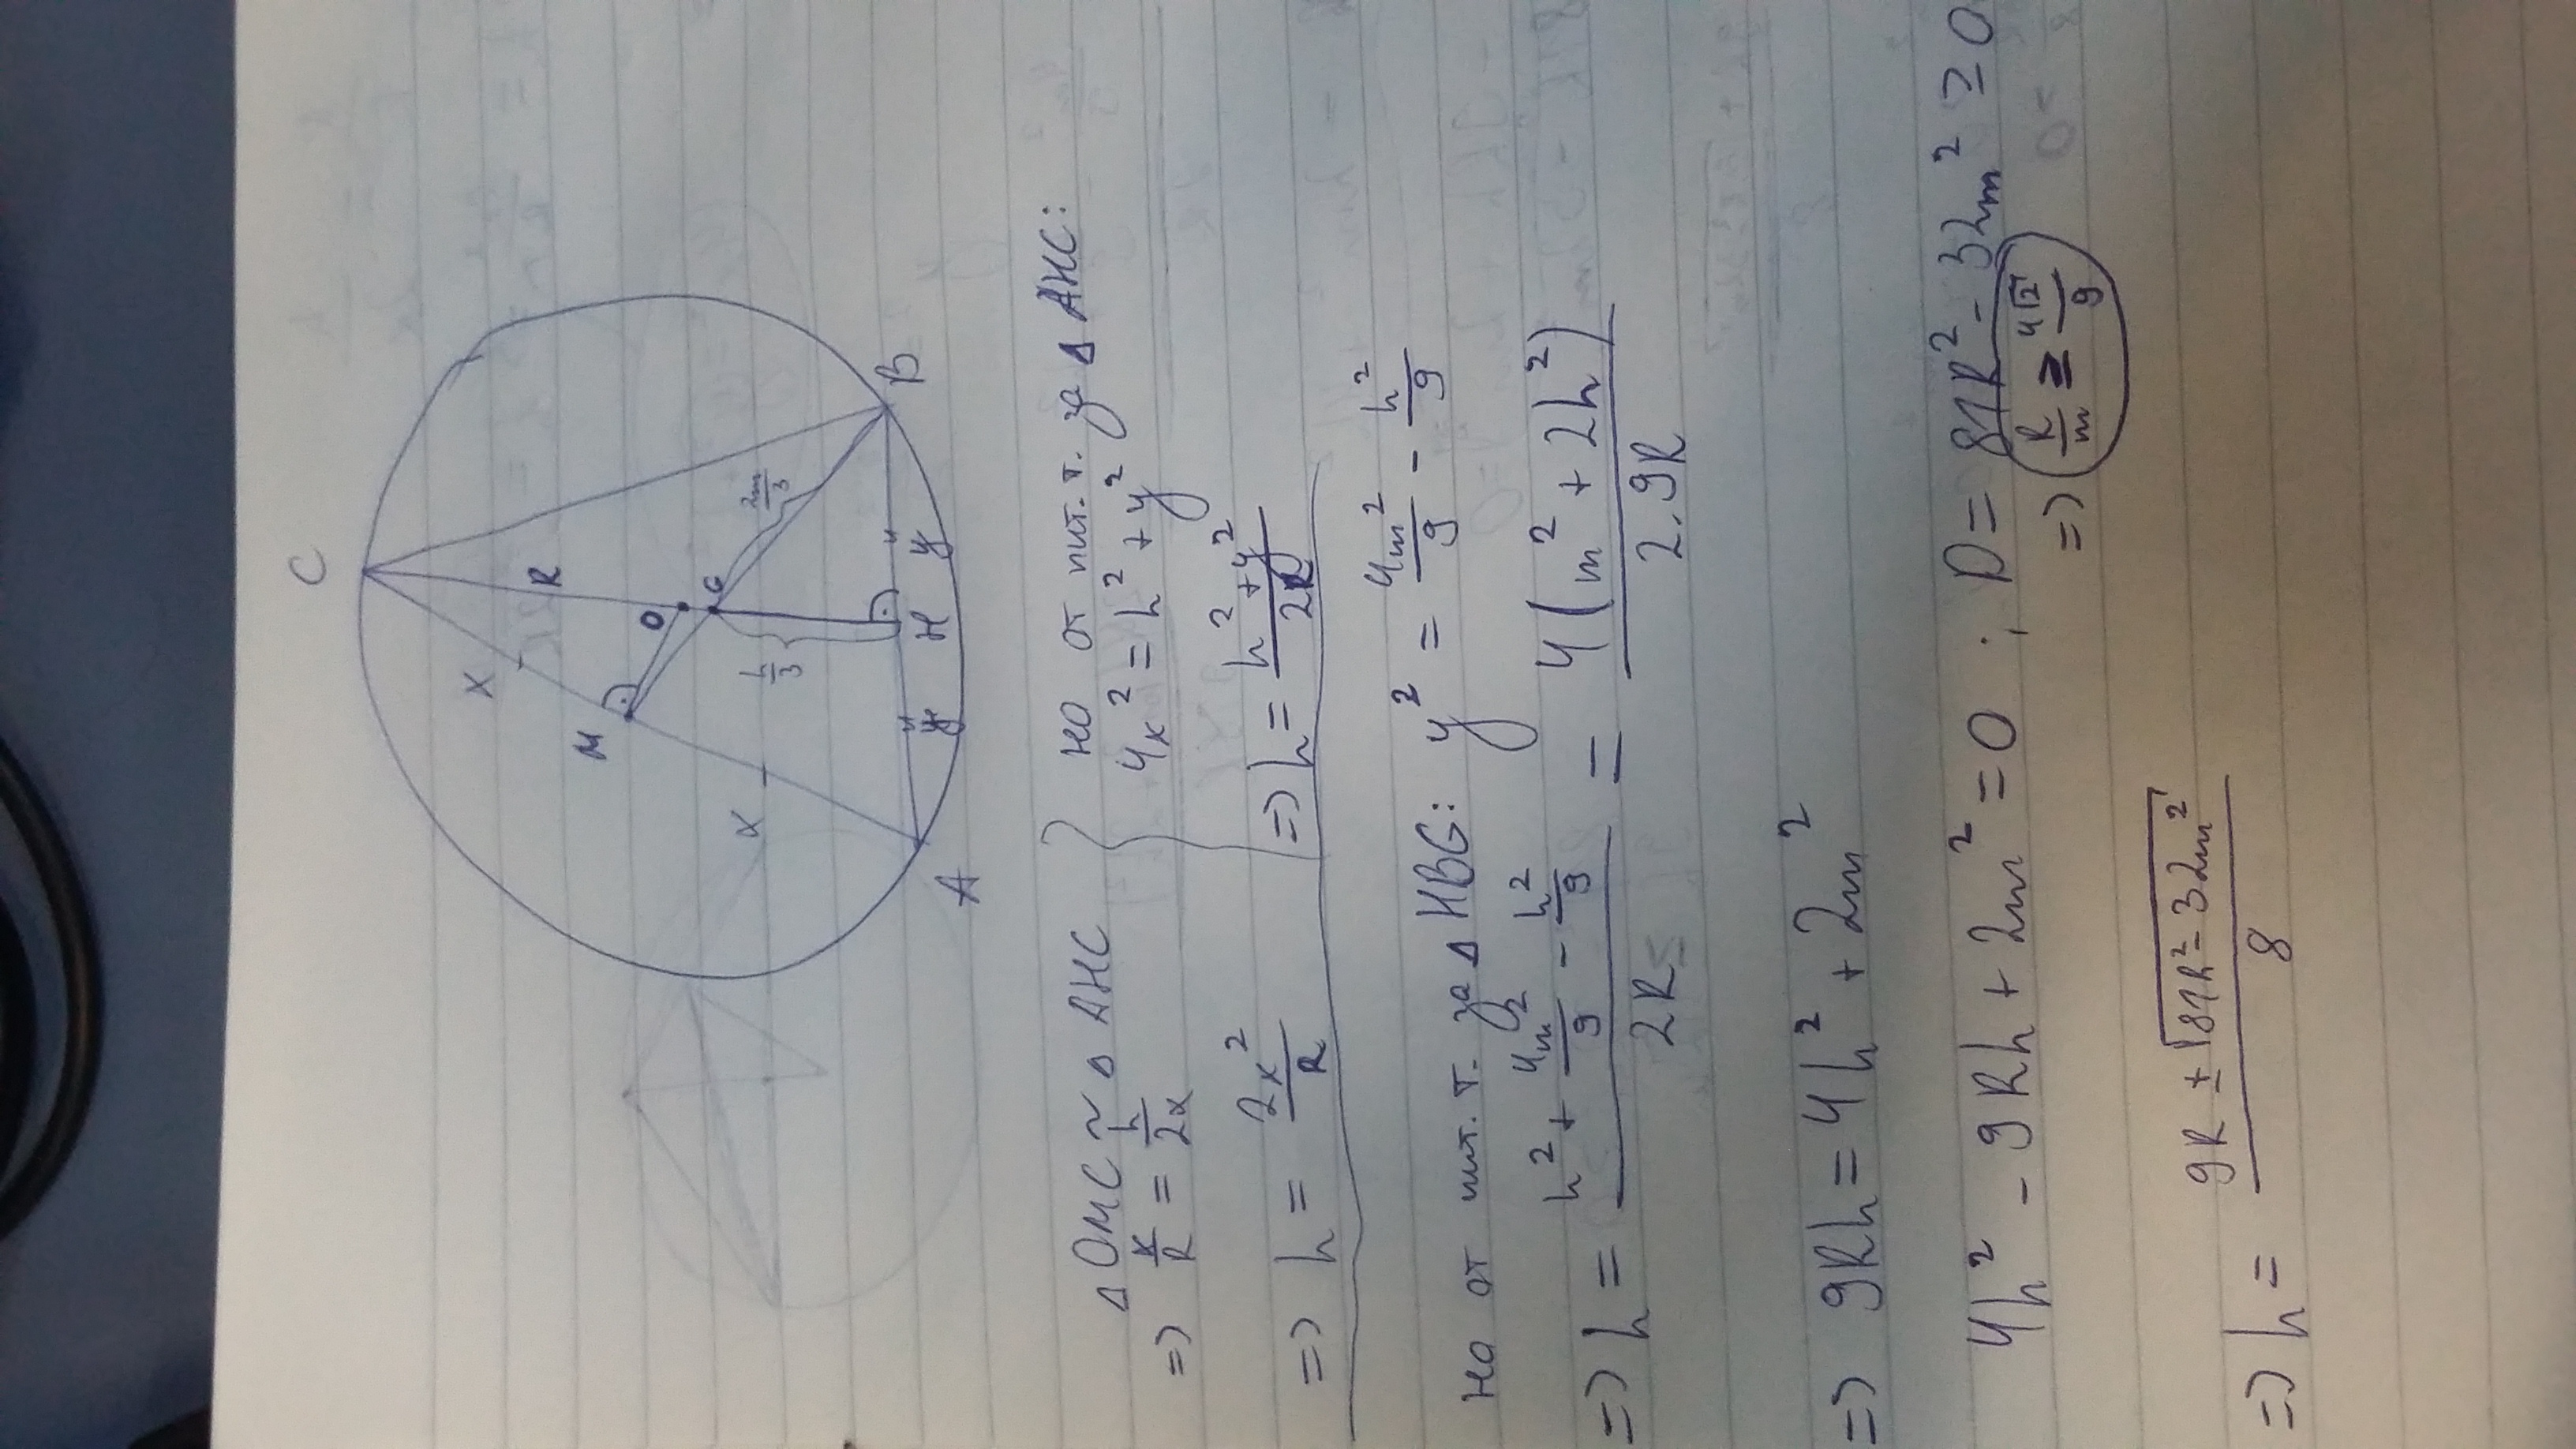 C
x
R
M
O
G
2m/3
x
h/3
y
y
A
H
B
Δ OMC ~ Δ AHC
=> x/R = h/2x
=> h = 2x²/R
но от пит. т. за Δ AHC:
4x² = h² + y²
=> h = (h² + y²)/2R
но от пит. т. за Δ HBG: y² = 4m²/9 - h²/9
=> h = (h² + 4m²/9 - h²/9)/2R = 4(m² + 2h²)/2.9R
=> 9Rh = 4h² + 2m²
4h² - 9Rh + 2m² = 0 ; D = 81R² - 32m² ≥ 0
=> R/m ≥ 4√2/9
=> h = (9R ± √81R² - 32m²)/8